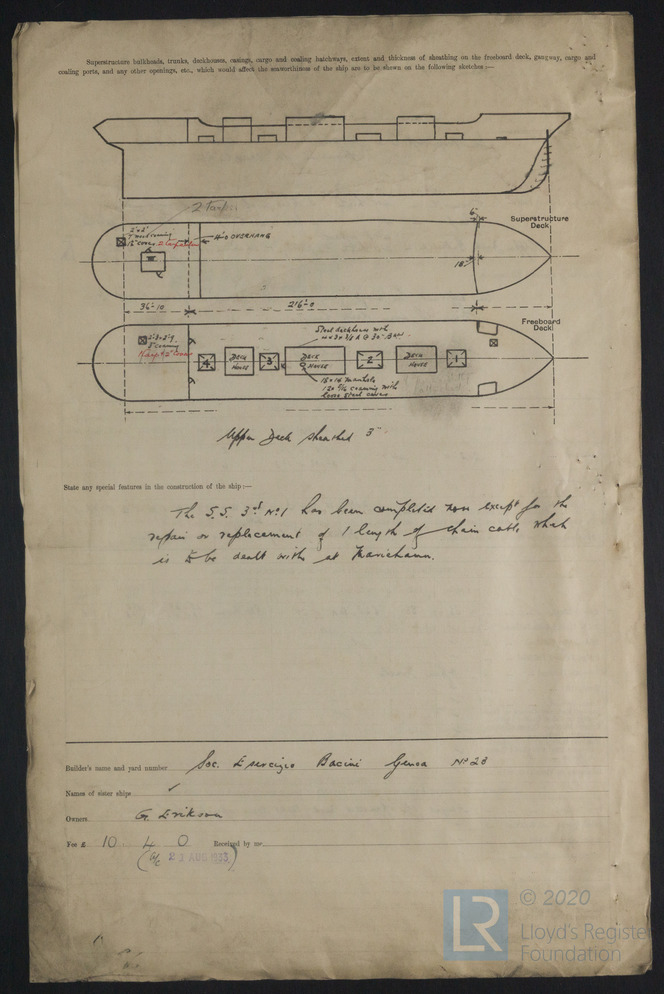 Superstructure bulkheads, trunks, deckhouses, casings, cargo and coaling hatchways, extent and thickness of sheathing on the freeboard deck, gangway, cargo and
coaling ports, and any other openings, etc., which would affect the seaworthiness of the ship are to be shewn on the following sketches:—
6'
Superstructure
Deck
4'-0 OVERHANG
18"
36'-10
216'-0
Freeboard
Deck
Steel deckhouse with
4
DECK
HOUSE
3
DECK
HOUSE
2
DECK
HOUSE
1
15 x 16 manhole
coaming with
loose steel covers
Upper Deck sheathed 3"
State any special features in the construction of the ship:—
The S.S. 3rd No1 has been completed now except for the
repair or replacement of 1 length of chain cable which
is to be dealt with at Mariehamn.
Builder's name and yard number Soc. Esercizio Bacini Genoa No 28
Names of sister ships ✓
Owners G. Erikson
Fee £ 10 4 0 Received by me
AUG 1933
LR
© 2020
Lloyd's Register
Foundation